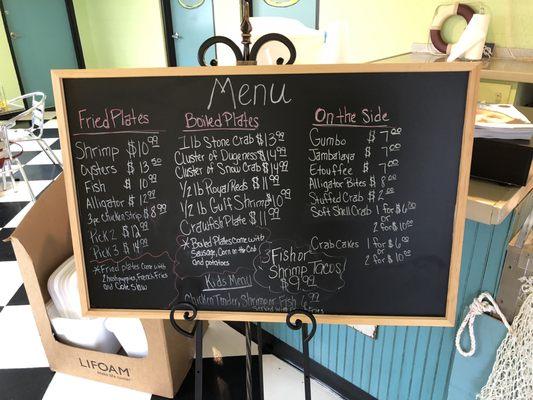 Menu
Fried Plates
Shrimp $10.99
Oysters $13.50
Fish $10.99
Alligator $12.99
3pc Chicken Strip $8.99
Pick 2 $12.99
Pick 3 $14.99
*Fried Plates come with
2 hushpuppies, French Fries
and Cole Slaw
Boiled Plates
1 lb Stone Crab $13.99
Cluster of Dugeness $14.99
Cluster of Snow $14.99
1/2 lb Royal Reds $11.99
1/2 lb Gulf Shrimp $10.99
Crawfish Plate $11.99
*Boiled Plates come with
Sausage, Corn on the Cob
and potatoes
Kids Menu
Chicken Tender, Shrimp or Fish 6.99
Served with Fries
On the Side
Gumbo $7.00
Jambalaya $7.00
Etouffee $7.00
Alligator Bites $8.00
Stuffed Crab $2.00
Soft Shell Crab 1 for $6.00
or
2 for $10.00
Crab Cakes 1 for $6.00
2 for $10.00
Fish or
Shrimp Tacos
$9.99
LIFOAM